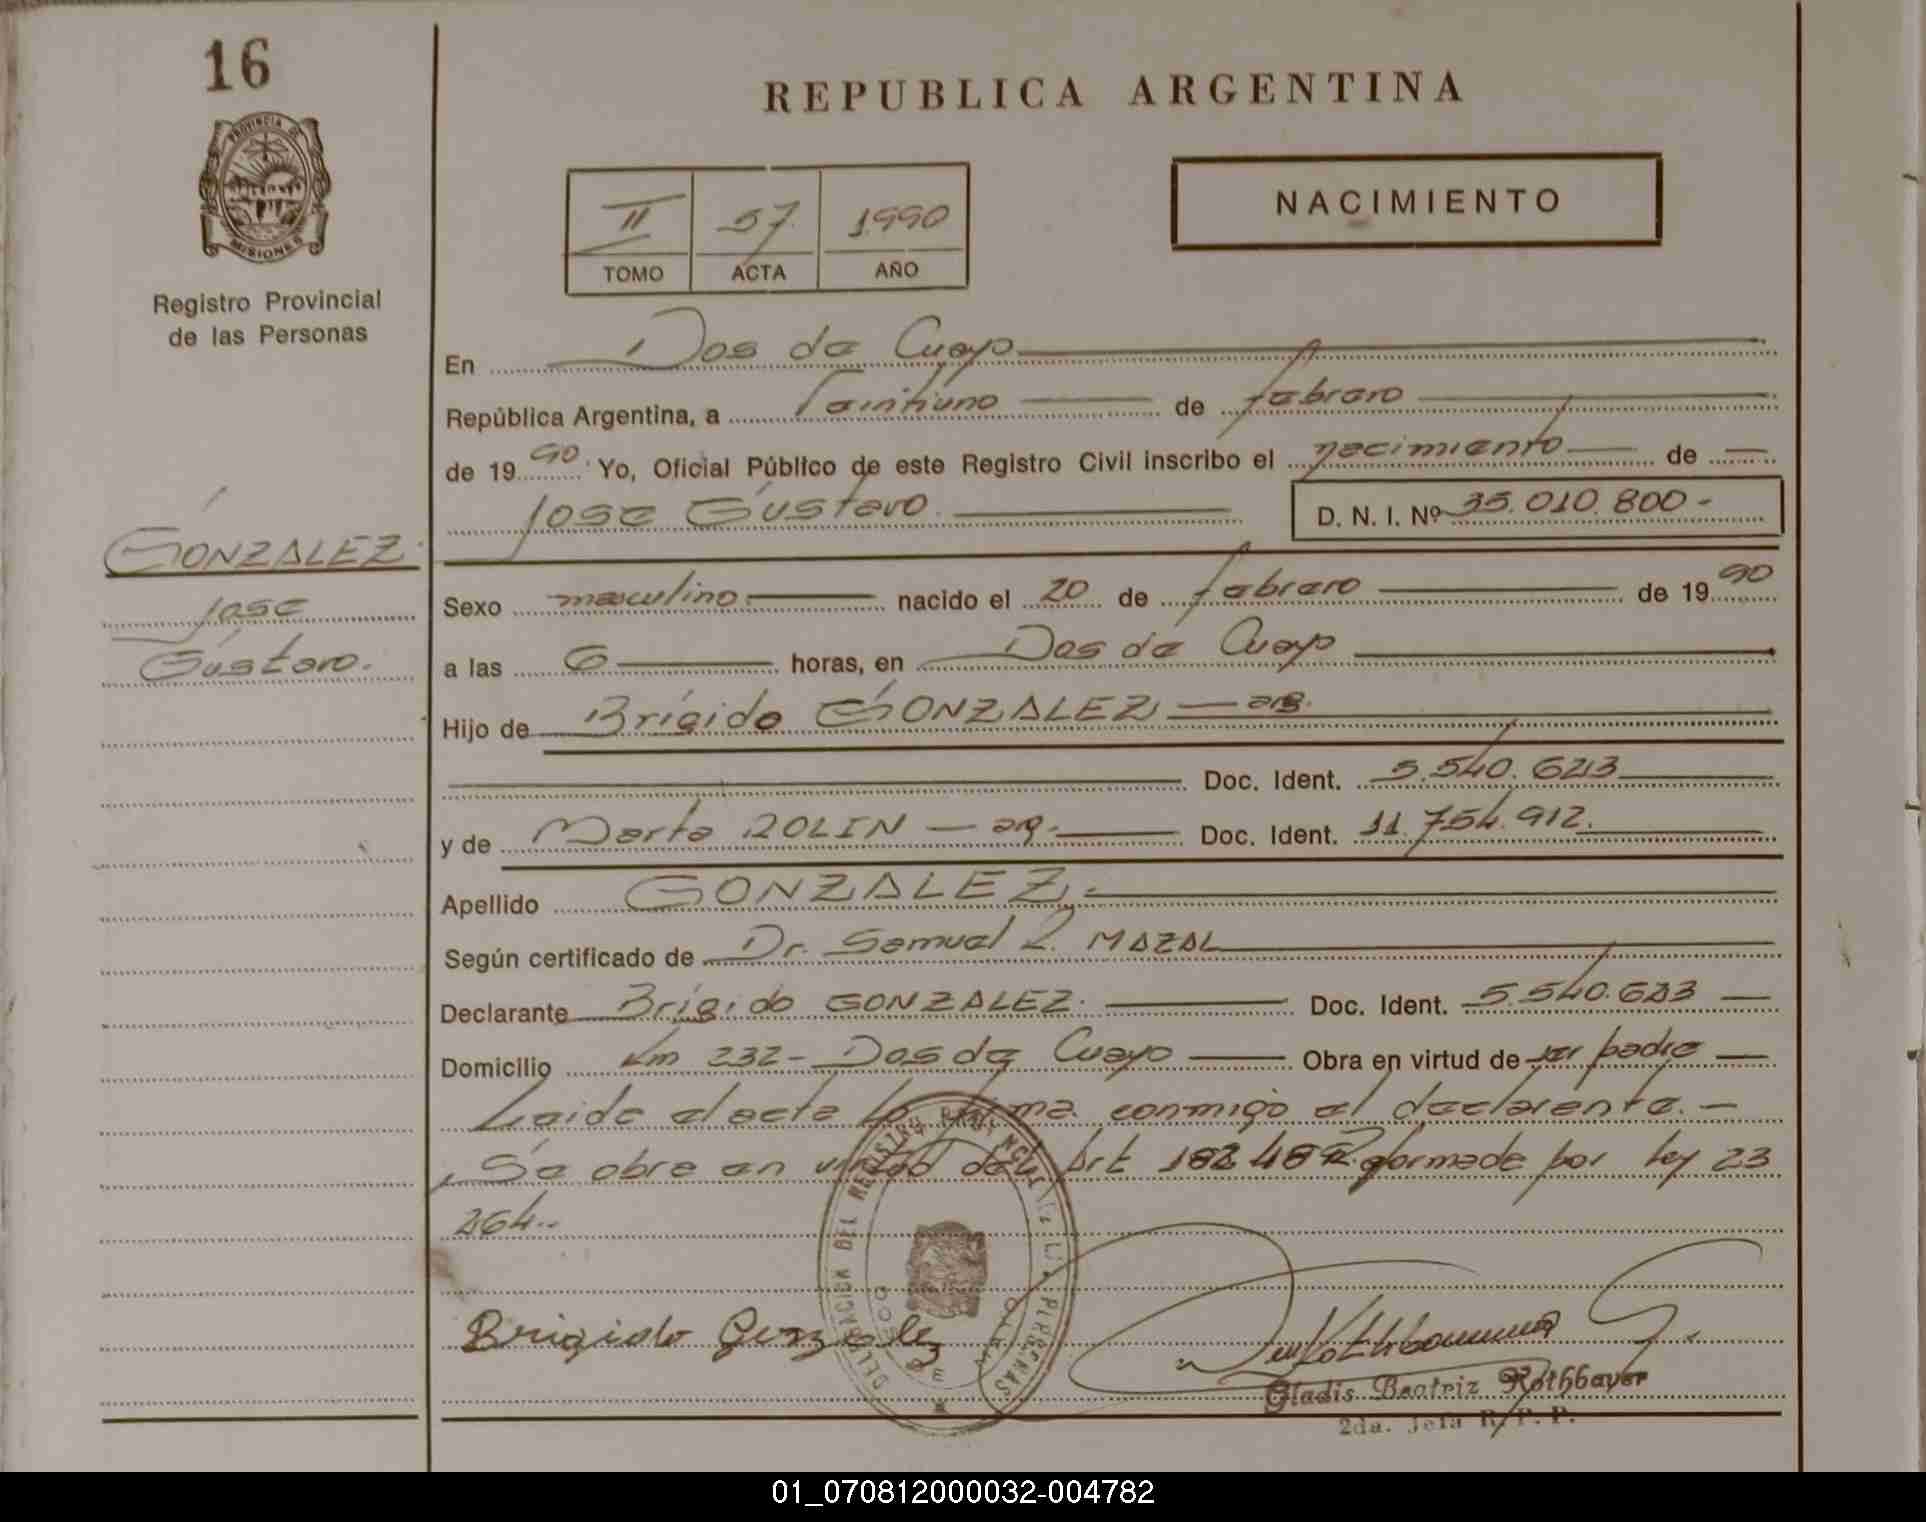 16
PROVINCIA DE
MISIONES
Registro Provincial
de las Personas
REPUBLICA ARGENTINA
II 57. 1990
TOMO ACTA AÑO
NACIMIENTO
En Dos de Mayo
República Argentina, a Veintiuno de febrero
de 1990. Yo, Oficial Público de este Registro Civil inscribo el nacimiento de
Jose Gustavo. D. N. I. Nº 35.010.800-
GONZALEZ.
Jose
Gustavo.
Sexo masculino. nacido el 20 de febrero de 1990
a las 6 horas, en Dos de Mayo
Hijo de Brígido GONZALEZ - arg.
Doc. Ident. 5.540.623
y de Marta ROLIN - arg. Doc. Ident. 11.754.912.
Apellido GONZALEZ.-
Según certificado de Dr. Samuel R. MAZAL
Declarante Brígido GONZALEZ. Doc. Ident. 5.540.623
Domicilio km 232- Dos de Mayo Obra en virtud de ser padre
Leida el acta la firma conmigo el declarante.-
Se obra en virtud del Art reformado por ley 23
264.-
Brigido Gonzalez
Gladis Beatriz Rothbauer
2da. Jefa R. P. P.
01_070812000032-004782